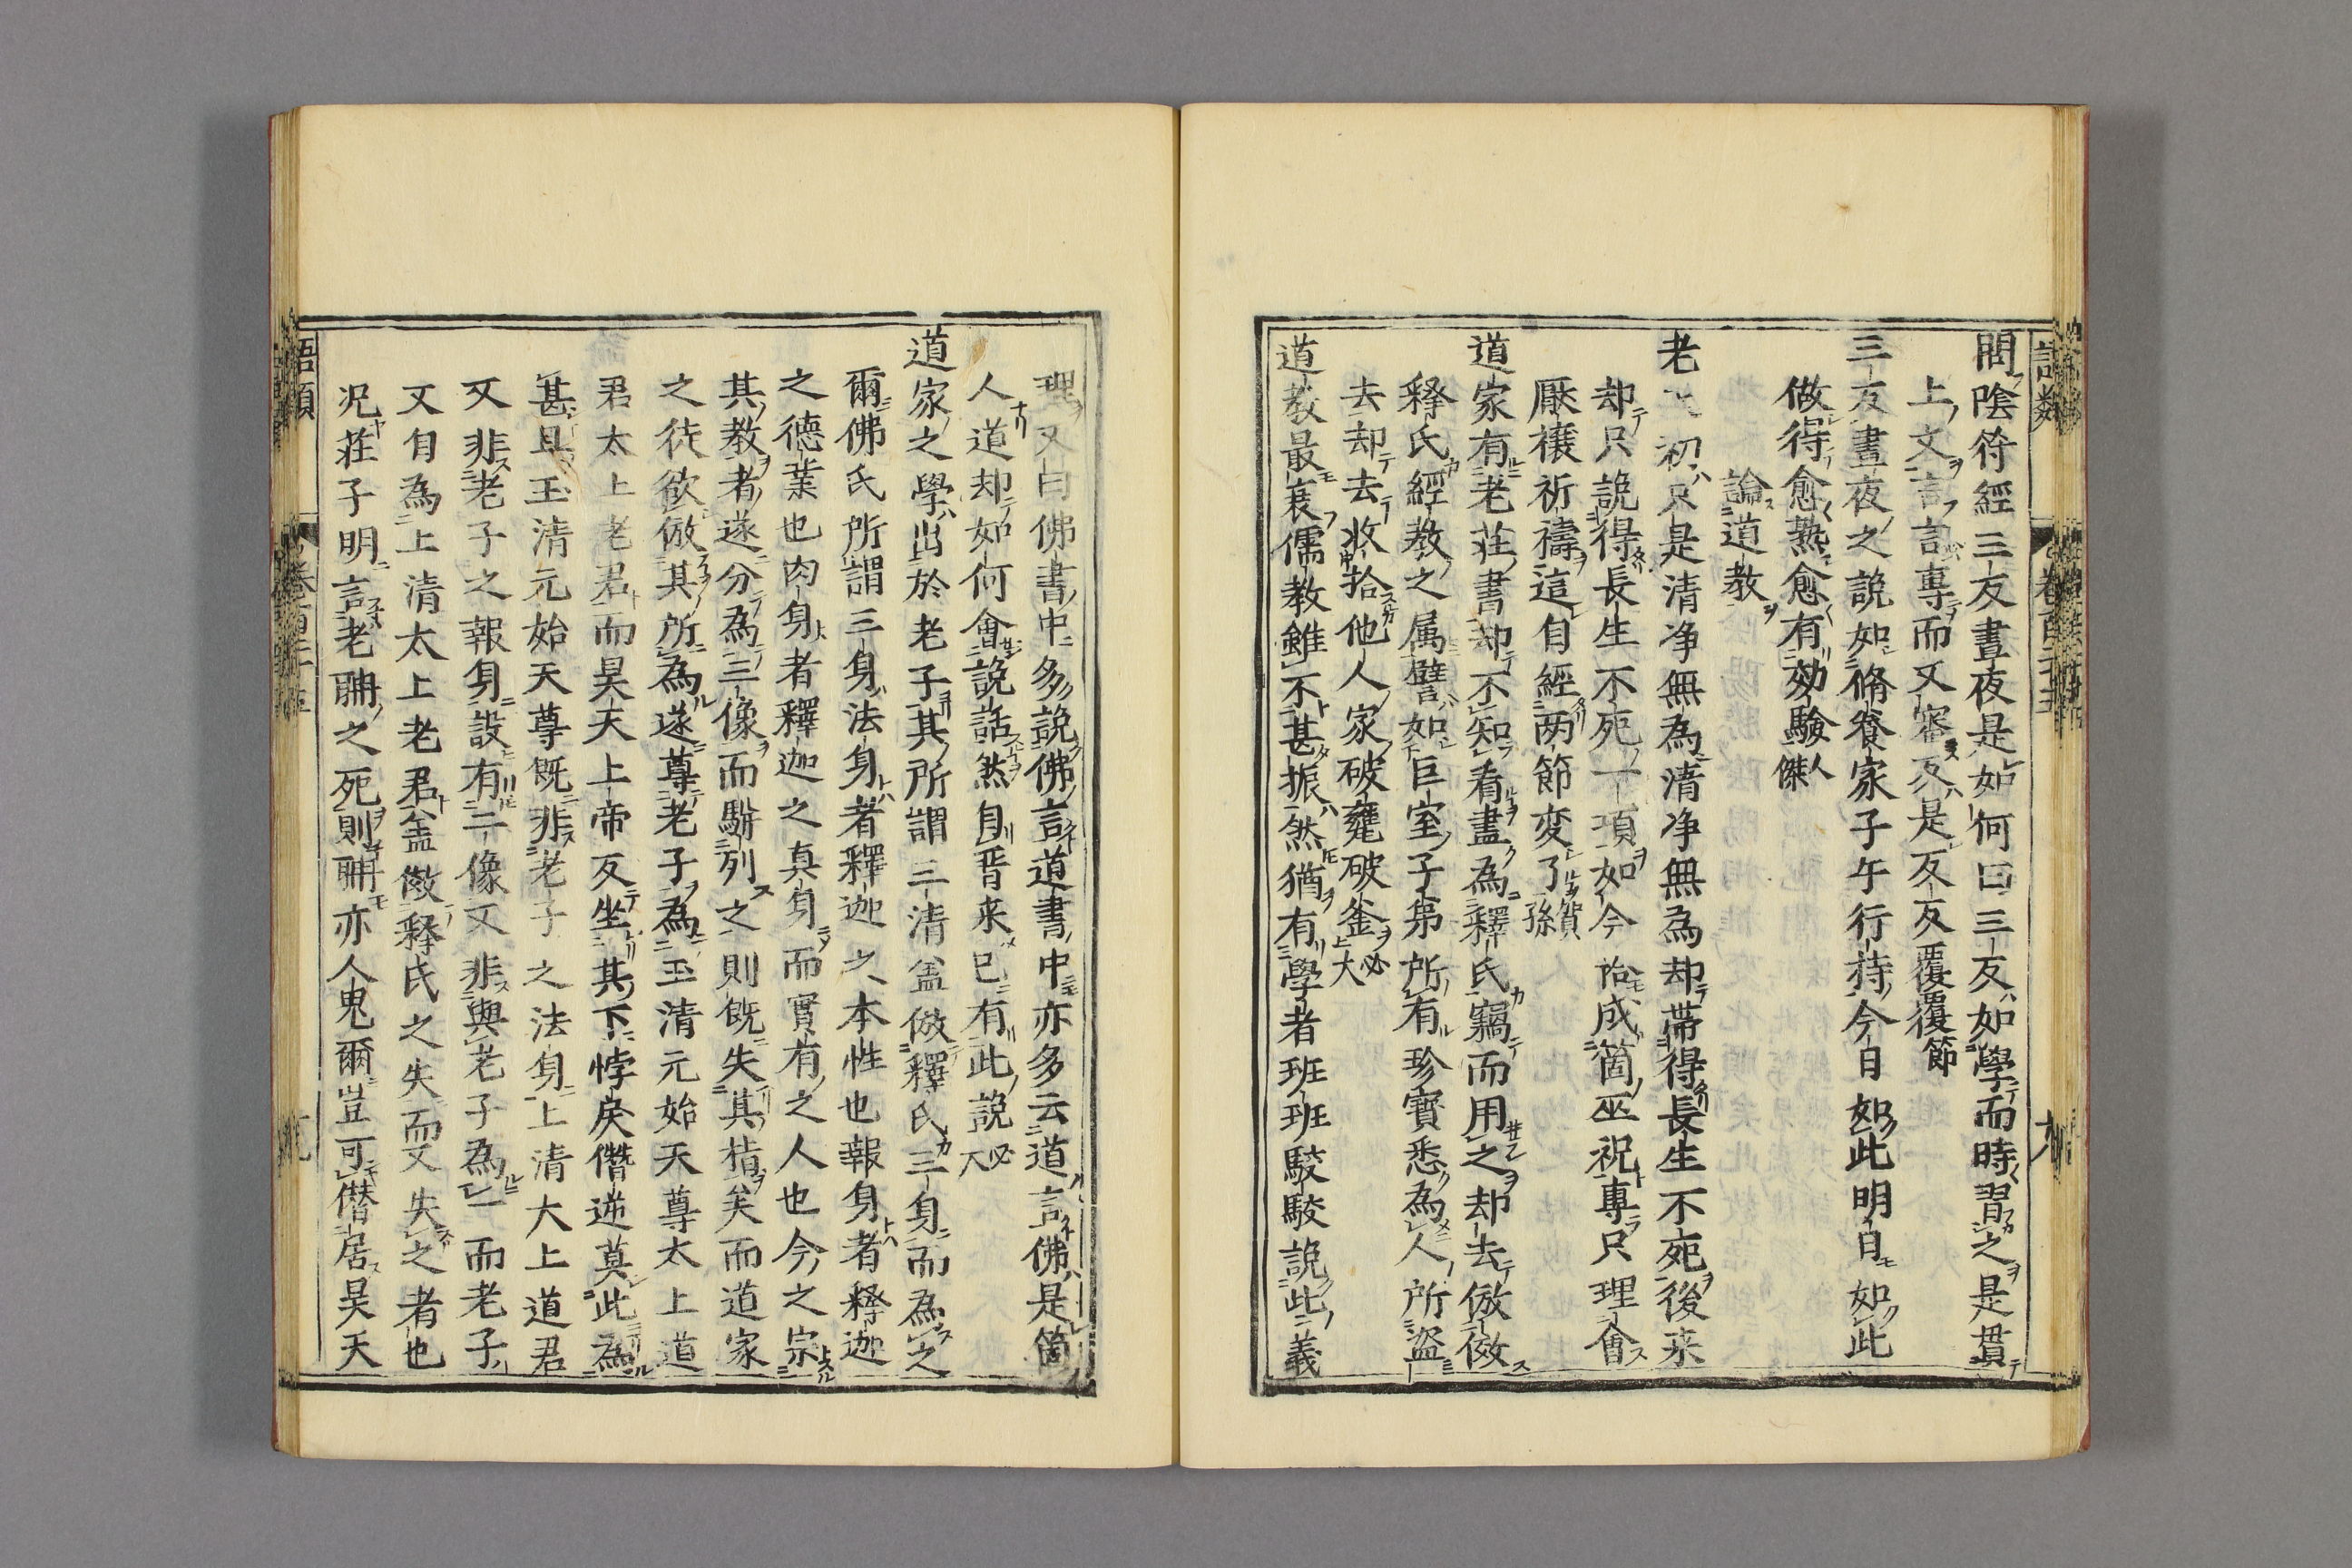 語類
卷百二十五
九
問陰符經三友晝夜是如何曰三友如學而時習之是貫
上文言言專而又審反是反反覆覆節
三友晝夜之説如脩養家子午行持今日如此明日如此
做得愈熟愈有効驗人傑
論道教
老 初只是清净無為清净無為却帶得長生不死後来
却只説得長生不死一項如今恰成箇巫祝専只理會
厭禳祈禱這自經两節変了賀孫
道家有老莊書却不知看盡為釋氏竊而用之却去倣傚
釋氏經教之属譬如巨室子弟所有珍寳悉為人所盜
去却去収拾他人家破甕破釜必大
道教最衰儒教雖不甚振然猶有學者班班駮駮説此義
理又曰佛書中多説佛言道書中亦多云道言佛是箇
人道却如何會説話然自晋来已有此説必大
道家之學出於老子其所謂三清盖倣釋氏三身而為之
爾佛氏所謂三身法身者釋迦之本性也報身者釋迦
之德業也肉身者釋迦之真身而實有之人也今之宗
其教者遂分為三像而駢列之則既失其指矣而道家
之徒欲倣其所為遂尊老子為玉清元始天尊太上道
君太上老君而昊天上帝反坐其下悖戾僭逆莫此為
甚且玉清元始天尊既非老子之法身上清大上道君
又非老子之報身設有二像又非與老子為一而老子
又自為上清太上老君盖倣釋氏之失而又失之者也
况莊子明言老聃之死則聃亦人鬼爾豈可僣居昊天
語類
卷百二十五